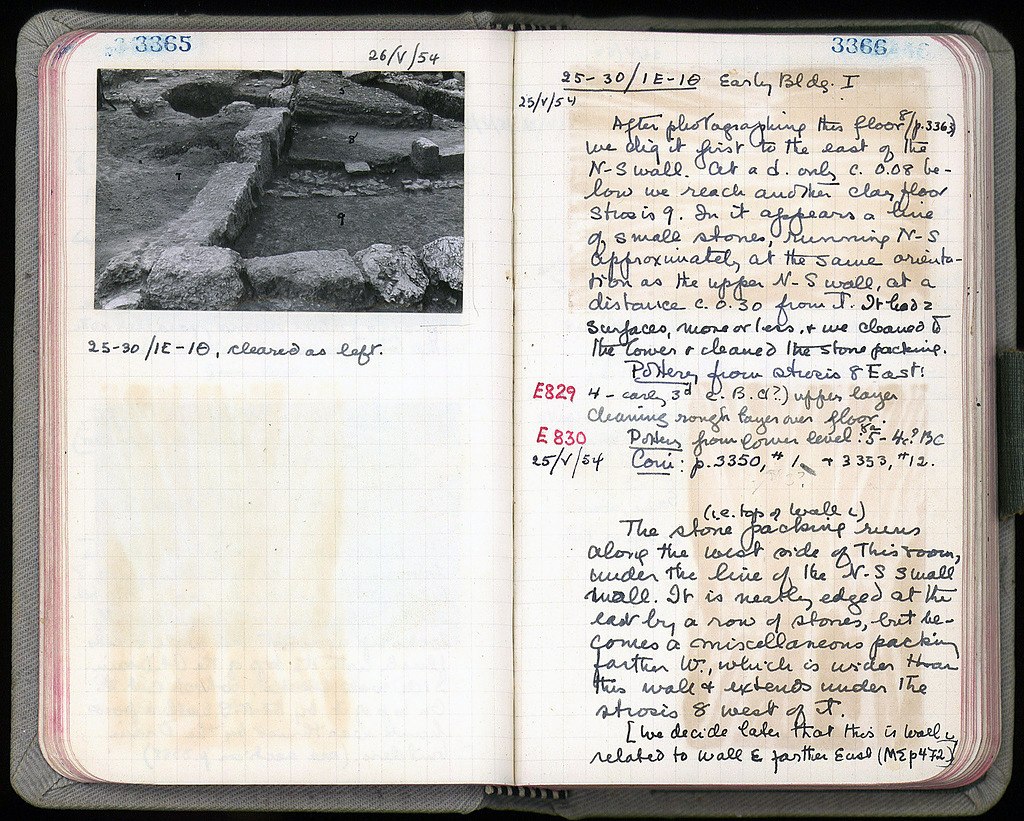 3365
26/V/54
5
8
7
9
25-30/ΙΕ-ΙΘ, cleared as left.
3366
25-30/ΙΕ-ΙΘ Early Bldg. I
25/V/54
After photographing this floor 8/(p.3363)
we dig it first to the east of the
N-S wall. At a d. only c. 0.08 be-
low we reach another clay floor
strosis 9. In it appears a line
of small stones, running N-S
approximately at the same orienta-
tion as the upper N-S wall, at a
distance c. 0.30 from it. It had 2
surfaces, more or less, & we cleaned to
the lower & cleaned the stone packing.
Pottery from strosis 8 East:
E829 4 - early 3rd c. B.C(?) upper layer
cleaning rough layer over floor.
E830 Pottery from lower level: 5-4c? BC
25/V/54 Coin: p.3350, #1 & 3353, #12.
(i.e. top of wall)
The stone packing runs
along the west side of this room,
under the line of the N-S small
wall. It is neatly edged at the
east by a row of stones, but be-
comes a miscellaneous packing
farther W., which is wider than
this wall & extends under the
strosis 8 west of it.
[We decide later that this is wall
related to wall E farther East (ΜΣ p472)]